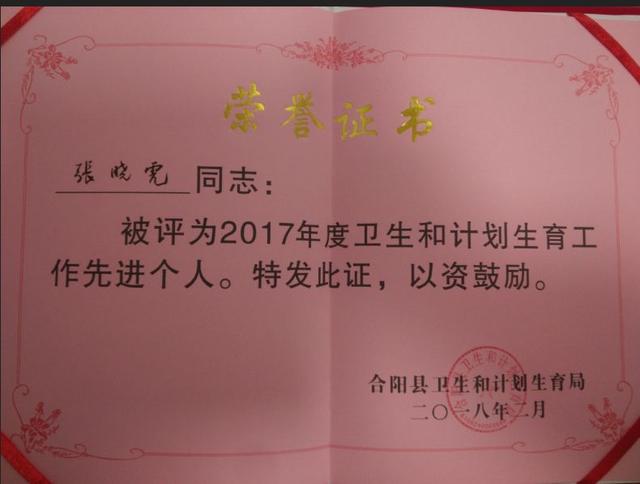 荣誉证书
張晓霓 同志：
被评为2017年度卫生和计划生育工
作先进个人。特发此证，以资鼓励。
合阳县卫生和计划生育局
二〇一八年二月